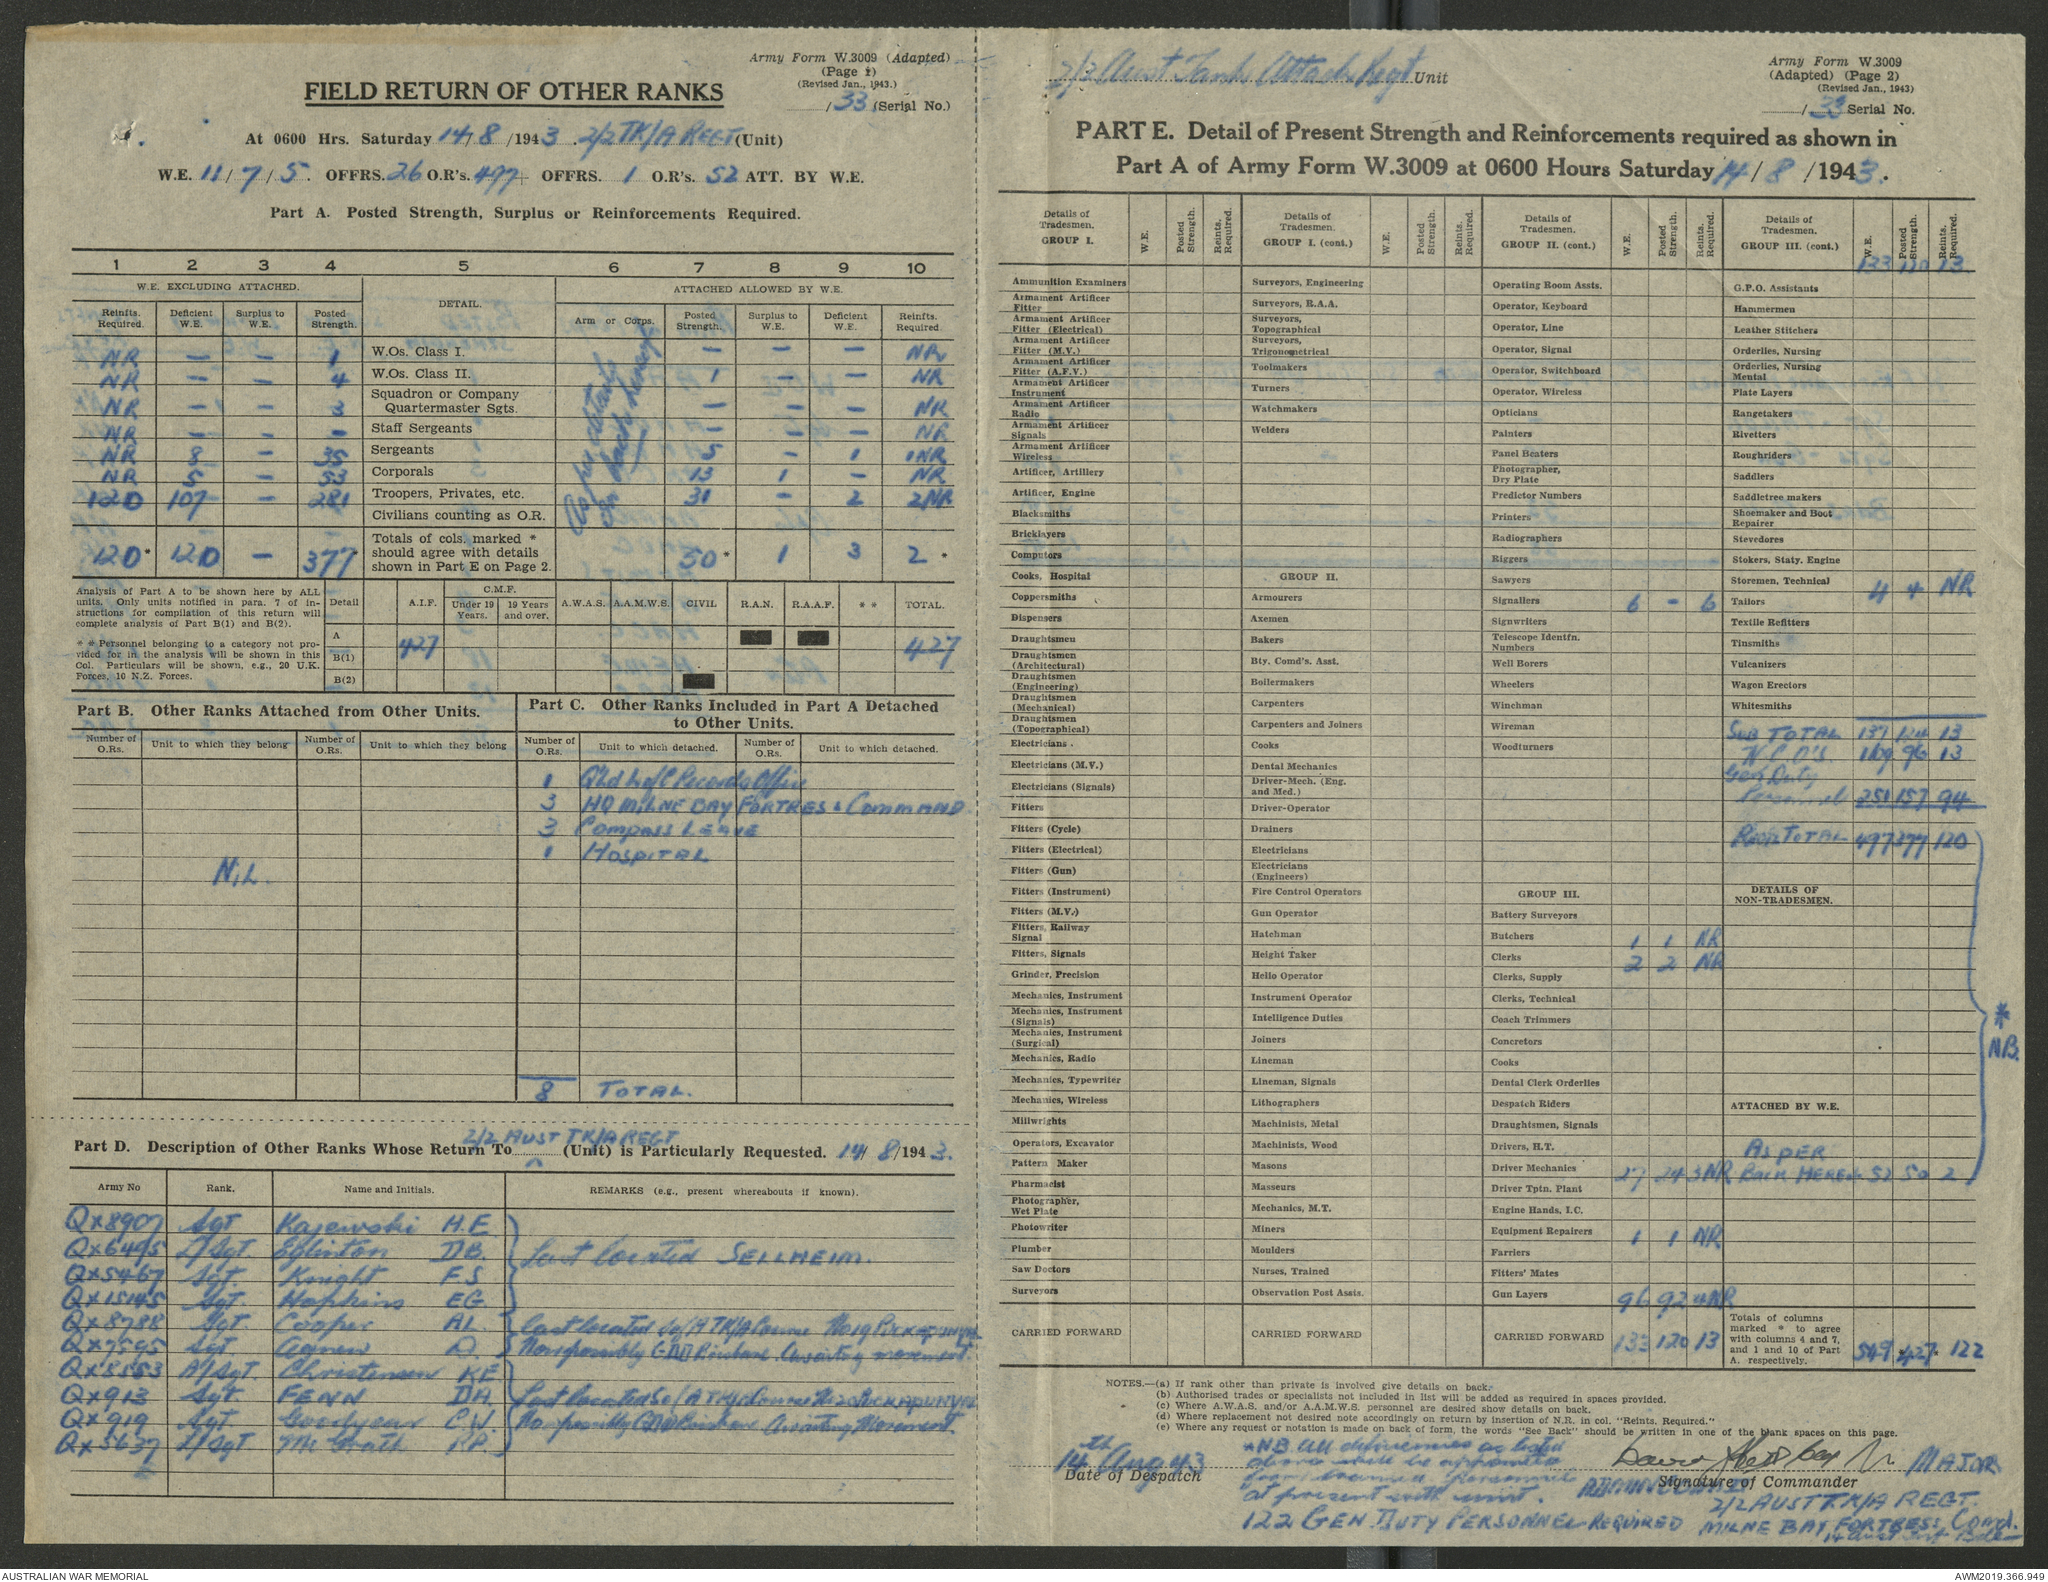 Army Form W.3009 (Adapted)
(Page 1)
(Revised Jan., 1943.)
/ 33 (Serial No.)
FIELD RETURN OF OTHER RANKS
At 0600 Hrs. Saturday 14/8 /1943 . 2/2 TK/A REGT (Unit)
W.E. 11 / 7 / 5. OFFRS. 26 O.R's. 497 OFFRS. 1 O.R's. 52 ATT. BY W.E.
Part A. Posted Strength, Surplus or Reinforcements Required.
1 2 3 4 5 6 7 8 9 10
W.E. EXCLUDING ATTACHED. DETAIL. ATTACHED ALLOWED BY W.E.
Reinfts. Required. Deficient W.E. Surplus to W.E. Posted Strength. Arm or Corps. Posted Strength. Surplus to W.E. Deficient W.E. Reinfts. Required.
As per details on back hereof
NR — — 1 W.Os. Class I. — — — NR
NR — — 4 W.Os. Class II. 1 — — NR
NR — — 3 Squadron or Company Quartermaster Sgts. — — — NR
NR — — — Staff Sergeants — — — NR
NR 8 — 35 Sergeants 5 — 1 1NR
NR 5 — 53 Corporals 13 1 — NR
120 107 — 281 Troopers, Privates, etc. 31 — 2 2NR
Civilians counting as O.R.
120* 120 — 377 Totals of cols. marked * should agree with details shown in Part E on Page 2. 50* 1 3 2 *
Analysis of Part A to be shown here by ALL units. Only units notified in para. 7 of instructions for compilation of this return will complete analysis of Part B(1) and B(2).
* * Personnel belonging to a category not provided for in the analysis will be shown in this Col. Particulars will be shown, e.g., 20 U.K. Forces, 10 N.Z. Forces.
Detail A.I.F. C.M.F. Under 19 Years. 19 Years and over. A.W.A.S. A.A.M.W.S. CIVIL R.A.N. R.A.A.F. * * TOTAL.
A 427 427
B(1)
B(2)
Part B. Other Ranks Attached from Other Units.
Number of O.Rs. Unit to which they belong Number of O.Rs. Unit to which they belong
NIL.
Part C. Other Ranks Included in Part A Detached to Other Units.
Number of O.Rs. Unit to which detached. Number of O.Rs. Unit to which detached.
1 Qld L of C Records Office
3 HQ MILNE BAY FORTRESS COMMAND
3 Compass LEAVE
1 HOSPITAL
8 TOTAL.
2/2 AUST TK/A REGT
Part D. Description of Other Ranks Whose Return To (Unit) is Particularly Requested. 14/ 8/1943.
Army No Rank. Name and Initials. REMARKS (e.g., present whereabouts if known).
QX8907 Sgt Kajewski H.E.
QX6495 L/Sgt. Eglinton D.B. Last located SELLHEIM.
QX5467 Sgt. Knight F.S
QX15145 Sgt. Hopkins EG
QX8788 Sgt. Cooper AL. Last located
QX7595 Sgt Agnew D. Now possibly GDD Awaiting movement.
QX8553 A/Sgt. Christensen KE
QX913 Sgt. FENN DA Last located
QX919 Sgt. Goodyear C.W. Now possibly GDD Awaiting Movement.
QX5637 L/Sgt McGrath P.P.
2/2 Aust Tank Attack Regt Unit
Army Form W.3009
(Adapted) (Page 2)
(Revised Jan., 1943)
/ 33 Serial No.
PART E. Detail of Present Strength and Reinforcements required as shown in
Part A of Army Form W.3009 at 0600 Hours Saturday 14 / 8 / 1943.
Details of Tradesmen. GROUP I. W.E. Posted Strength. Reints. Required.
Ammunition Examiners
Armament Artificer Fitter
Armament Artificer Fitter (Electrical)
Armament Artificer Fitter (M.V.)
Armament Artificer Fitter (A.F.V.)
Armament Artificer Instrument
Armament Artificer Radio
Armament Artificer Signals
Armament Artificer Wireless
Artificer, Artillery
Artificer, Engine
Blacksmiths
Bricklayers
Computors
Cooks, Hospital
Coppersmiths
Dispensers
Draughtsmen
Draughtsmen (Architectural)
Draughtsmen (Engineering)
Draughtsmen (Mechanical)
Draughtsmen (Topographical)
Electricians .
Electricians (M.V.)
Electricians (Signals)
Fitters
Fitters (Cycle)
Fitters (Electrical)
Fitters (Gun)
Fitters (Instrument)
Fitters (M.V.)
Fitters, Railway Signal
Fitters, Signals
Grinder, Precision
Mechanics, Instrument
Mechanics, Instrument (Signals)
Mechanics, Instrument (Surgical)
Mechanics, Radio
Mechanics, Typewriter
Mechanics, Wireless
Millwrights
Operators, Excavator
Pattern Maker
Pharmacist
Photographer, Wet Plate
Photowriter
Plumber
Saw Doctors
Surveyors
CARRIED FORWARD
Details of Tradesmen. GROUP I. (cont.) W.E. Posted Strength. Reints. Required.
Surveyors, Engineering
Surveyors, R.A.A.
Surveyors, Topographical
Surveyors, Trigonometrical
Toolmakers
Turners
Watchmakers
Welders
GROUP II.
Armourers
Axemen
Bakers
Bty. Comd's. Asst.
Boilermakers
Carpenters
Carpenters and Joiners
Cooks
Dental Mechanics
Driver-Mech. (Eng. and Med.)
Driver-Operator
Drainers
Electricians
Electricians (Engineers)
Fire Control Operators
Gun Operator
Hatchman
Height Taker
Hello Operator
Instrument Operator
Intelligence Duties
Joiners
Lineman
Lineman, Signals
Lithographers
Machinists, Metal
Machinists, Wood
Masons
Masseurs
Mechanics, M.T.
Miners
Moulders
Nurses, Trained
Observation Post Assts.
CARRIED FORWARD
Details of Tradesmen. GROUP II. (cont.) W.E. Posted Strength. Reints. Required.
Operating Room Assts.
Operator, Keyboard
Operator, Line
Operator, Signal
Operator, Switchboard
Operator, Wireless
Opticians
Painters
Panel Beaters
Photographer, Dry Plate
Predictor Numbers
Printers
Radiographers
Riggers
Sawyers
Signallers 6 - 6
Signwriters
Telescope Identfn. Numbers
Well Borers
Wheelers
Winchman
Wireman
Woodturners
GROUP III.
Battery Surveyors
Butchers 1 1 NR
Clerks 2 2 NR
Clerks, Supply
Clerks, Technical
Coach Trimmers
Concretors
Cooks
Dental Clerk Orderlies
Despatch Riders
Draughtsmen, Signals
Drivers, H.T.
Driver Mechanics 27 24 3NR
Driver Tptn. Plant
Engine Hands, I.C.
Equipment Repairers 1 1 NR
Farriers
Fitters' Mates
Gun Layers 96 92 4NR
CARRIED FORWARD 133 120 13
Details of Tradesmen. GROUP III. (cont.) W.E. Posted Strength. Reints. Required.
133 120 13
G.P.O. Assistants
Hammermen
Leather Stitchers
Orderlies, Nursing
Orderlies, Nursing Mental
Plate Layers
Rangetakers
Rivetters
Roughriders
Saddlers
Saddletree makers
Shoemaker and Boot Repairer
Stevedores
Stokers, Staty. Engine
Storemen, Technical 4 4 NR
Tailors
Textile Refitters
Tinsmiths
Vulcanizers
Wagon Erectors
Whitesmiths
SUB TOTAL 137 124 13
N.C.O'S 109 96 13
Gen Duty Personnel 251 157 94
TOTAL 497 377 120
DETAILS OF NON-TRADESMEN.
* NB.
ATTACHED BY W.E.
AS PER BACK HEREOF 52 50 2
Totals of columns marked * to agree with columns 4 and 7, and 1 and 10 of Part A. respectively. 549 *427* 122
NOTES.—(a) If rank other than private is involved give details on back.
(b) Authorised trades or specialists not included in list will be added as required in spaces provided.
(c) Where A.W.A.S. and/or A.A.M.W.S. personnel are desired show details on back.
(d) Where replacement not desired note accordingly on return by insertion of N.R. in col. "Reints. Required."
(e) Where any request or notation is made on back of form, the words "See Back" should be written in one of the blank spaces on this page.
14th Aug 43
Date of Despatch
*NB. All deficiencies as listed
above will be
from trained personnel
at present with unit.
122 GEN DUTY PERSONNEL REQUIRED
MAJOR
Signature of Commander
2/2 AUST TK/A REGT.
MILNE BAY FORTRESS Comd.
AUSTRALIAN WAR MEMORIAL
AWM2019.366.949